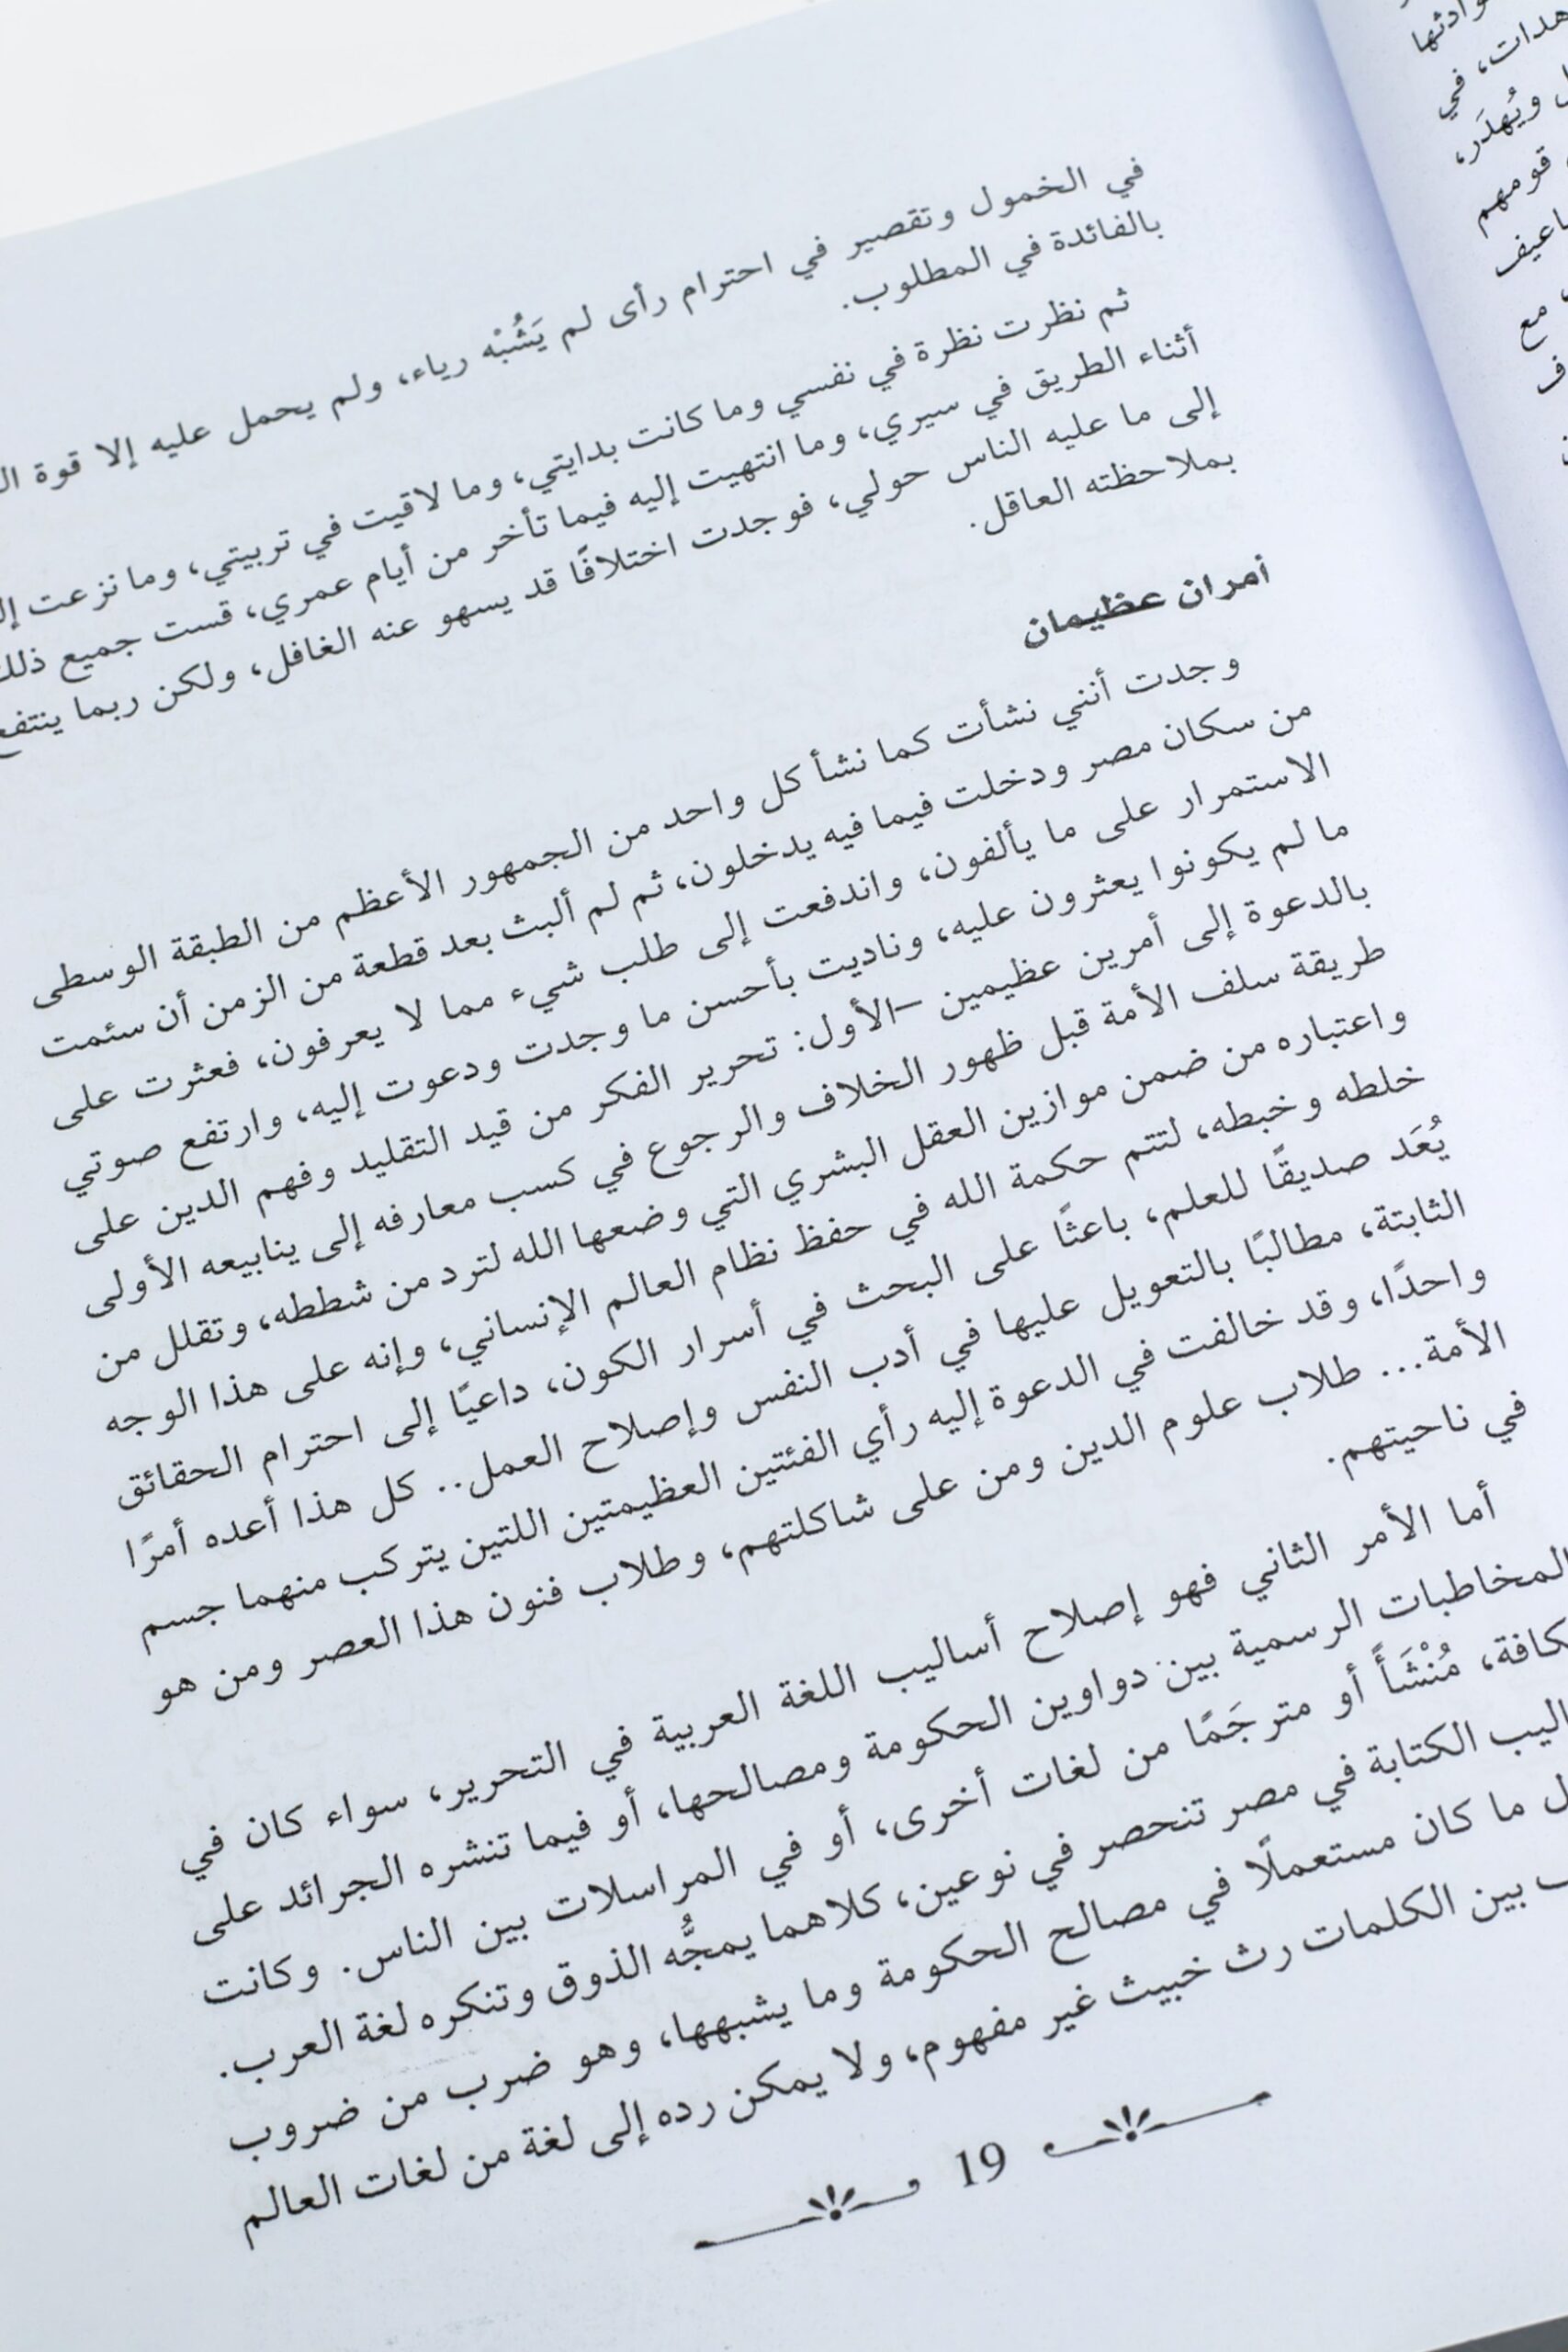 في الخمول وتقصير في احترام رأى لم يَشُبْه رياء، ولم يحمل عليه إلا قوة
بالفائدة في المطلوب.
ثم نظرت نظرة في نفسي وما كانت بدايتي، وما لاقيت في تربيتي، وما نزعت
أثناء الطريق في سيري، وما انتهيت إليه فيما تأخر من أيام عمري، قست جميع ذلك
إلى ما عليه الناس حولي، فوجدت اختلافًا قد يسهو عنه الغافل، ولكن ربما ينتفع
بملاحظته العاقل.
أمران عظيمان
وجدت أنني نشأت كما نشأ كل واحد من الجمهور الأعظم من الطبقة الوسطى
من سكان مصر ودخلت فيما فيه يدخلون، ثم لم ألبث بعد قطعة من الزمن أن سئمت
الاستمرار على ما يألفون، واندفعت إلى طلب شيء مما لا يعرفون، فعثرت على
ما لم يكونوا يعثرون عليه، وناديت بأحسن ما وجدت ودعوت إليه، وارتفع صوتي
بالدعوة إلى أمرين عظيمين –الأول: تحرير الفكر من قيد التقليد وفهم الدين على
طريقة سلف الأمة قبل ظهور الخلاف والرجوع في كسب معارفه إلى ينابيعه الأولى
واعتباره من ضمن موازين العقل البشري التي وضعها الله لترد من شططه، وتقلل من
خلطه وخبطه، لتتم حكمة الله في حفظ نظام العالم الإنساني، وإنه على هذا الوجه
يُعَد صديقًا للعلم، باعثًا على البحث في أسرار الكون، داعيًا إلى احترام الحقائق
الثابتة، مطالبًا بالتعويل عليها في أدب النفس وإصلاح العمل.. كل هذا أعده أمرًا
واحدًا، وقد خالفت في الدعوة إليه رأي الفئتين العظيمتين اللتين يتركب منهما جسم
الأمة... طلاب علوم الدين ومن على شاكلتهم، وطلاب فنون هذا العصر ومن هو
في ناحيتهم.
أما الأمر الثاني فهو إصلاح أساليب اللغة العربية في التحرير، سواء كان في
المخاطبات الرسمية بين دواوين الحكومة ومصالحها، أو فيما تنشره الجرائد على
كافة، مُنْشَأً أو مترجَمًا من لغات أخرى، أو في المراسلات بين الناس. وكانت
الكتابة في مصر تنحصر في نوعين، كلاهما يمجُّه الذوق وتنكره لغة العرب.
ما كان مستعملًا في مصالح الحكومة وما يشبهها، وهو ضرب من ضروب
بين الكلمات رث خبيث غير مفهوم، ولا يمكن رده إلى لغة من لغات العالم
19
هدات، في
ويُهدَر،
قومهم
مع